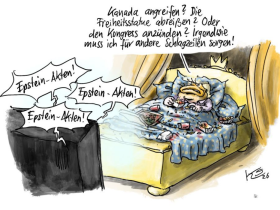 Kanada angreifen? Die
Freiheitsstatue abreißen? Oder
den Kongress anzünden? Irgendwie
muss ich für andere Schlagzeilen sorgen!
Epstein-Akten!
Epstein-Akten!
Epstein-Akten!